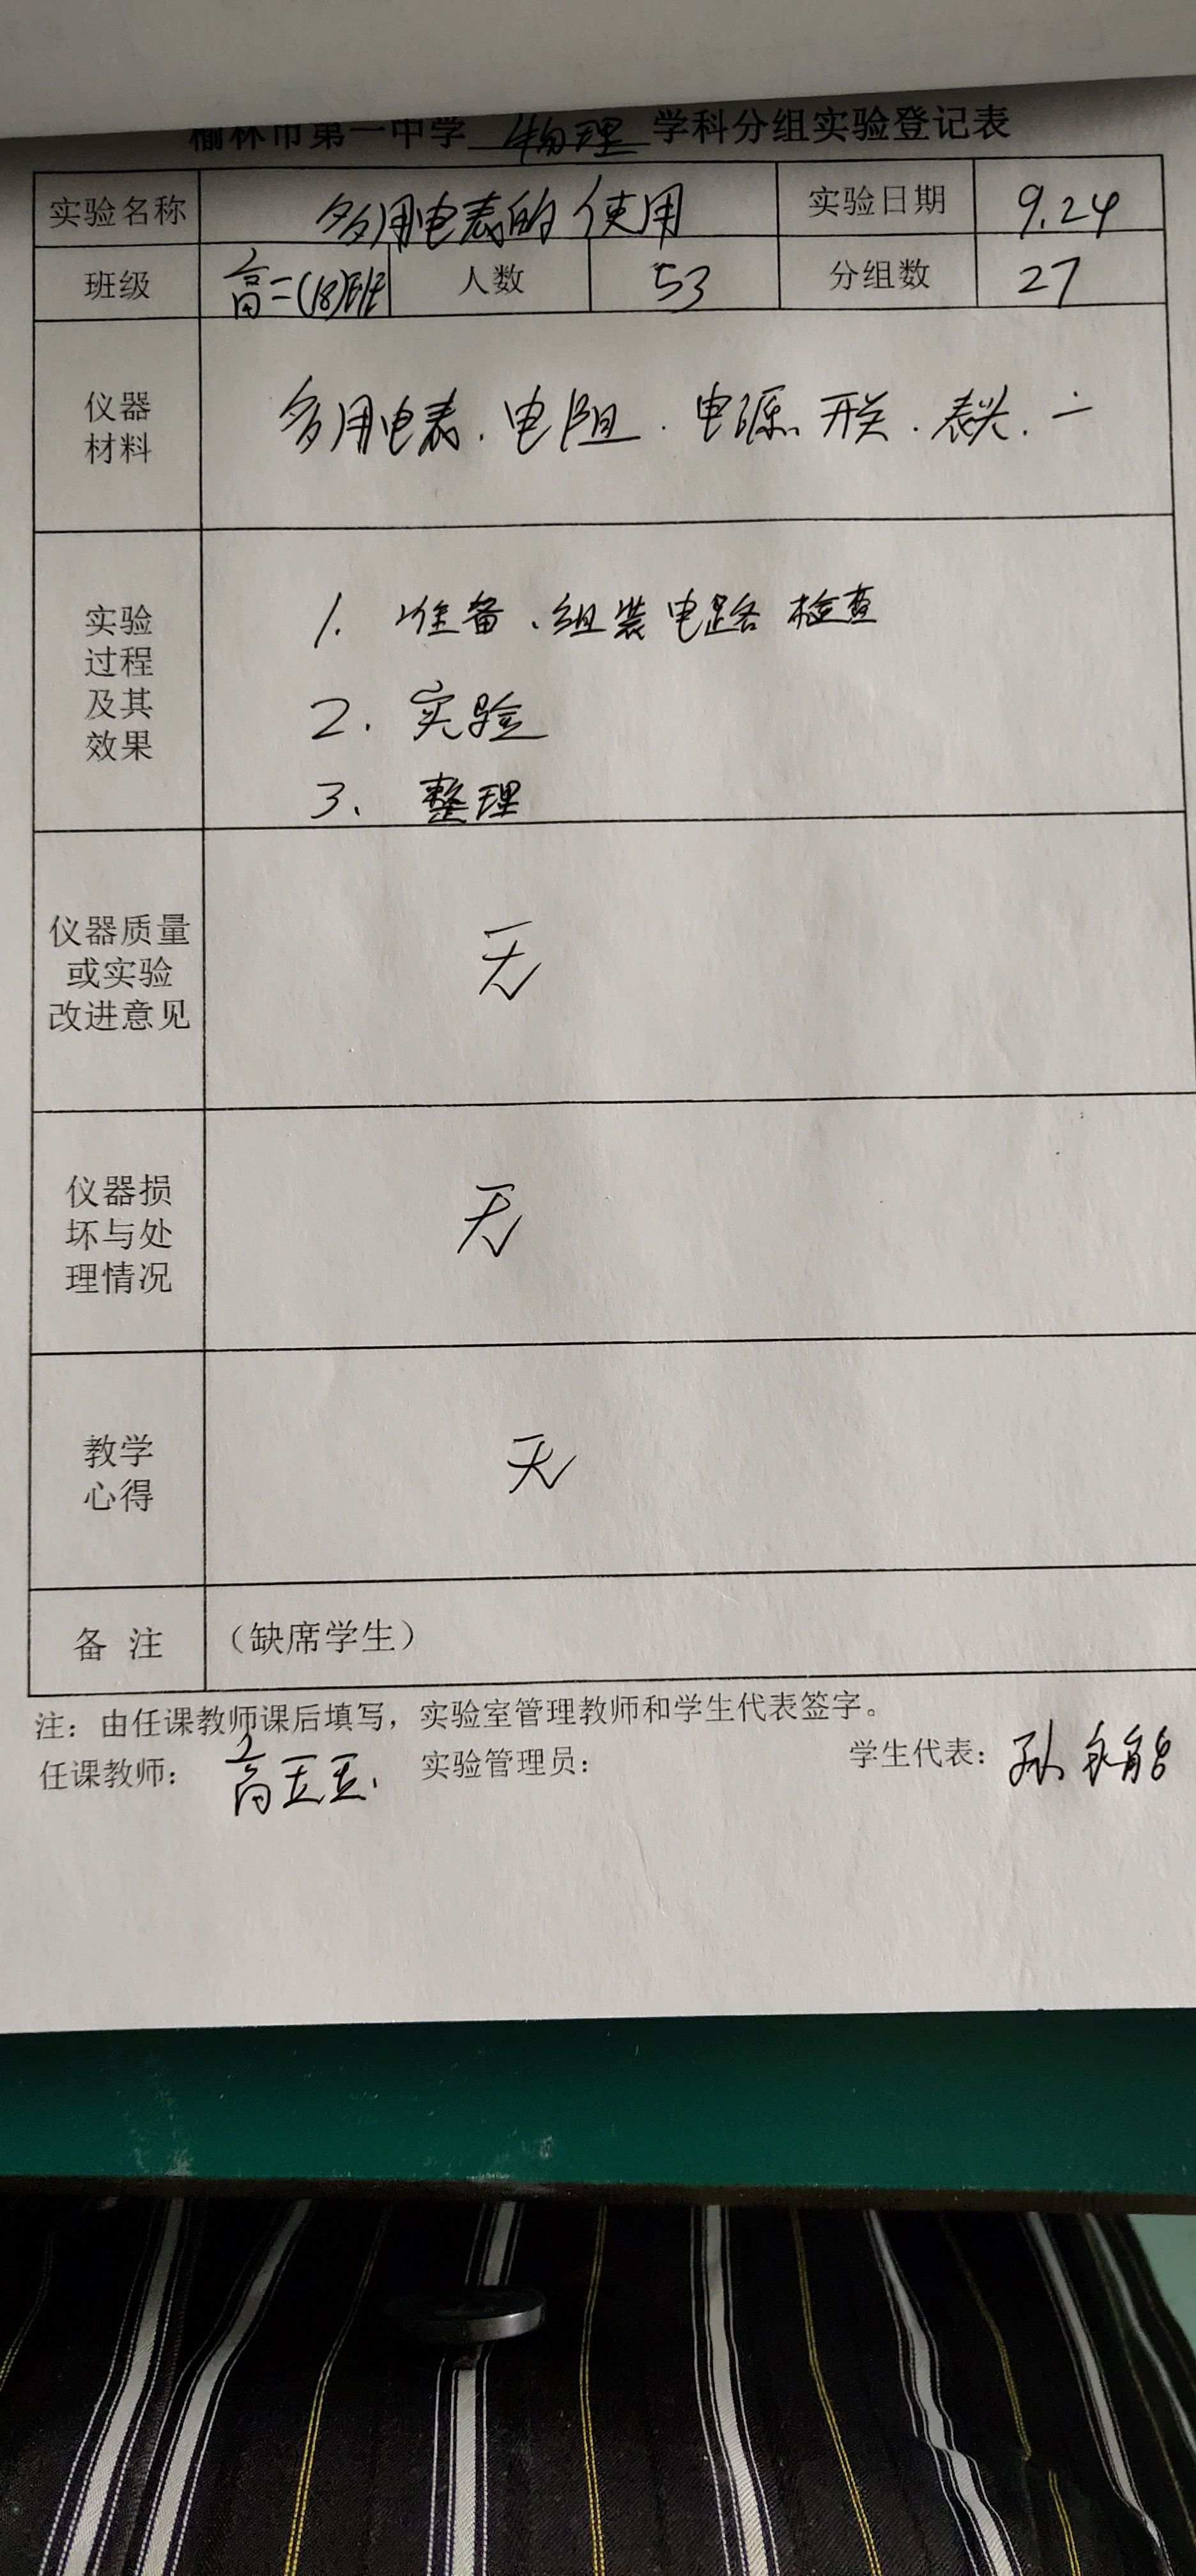 榆林市第一中学 物理 学科分组实验登记表
实验名称 多用电表的使用 实验日期 9.24
班级 高二(18)班 人数 53 分组数 27
仪器
材料
多用电表、电阻、电源、开关、表头、
实验
过程
及其
效果
1. 准备、组装电路 检查
2. 实验
3、整理
仪器质量
或实验
改进意见
无
仪器损
坏与处
理情况
无
教学
心得
无
备 注 (缺席学生)
注：由任课教师课后填写，实验室管理教师和学生代表签字。
任课教师： 高 实验管理员： 学生代表：孙